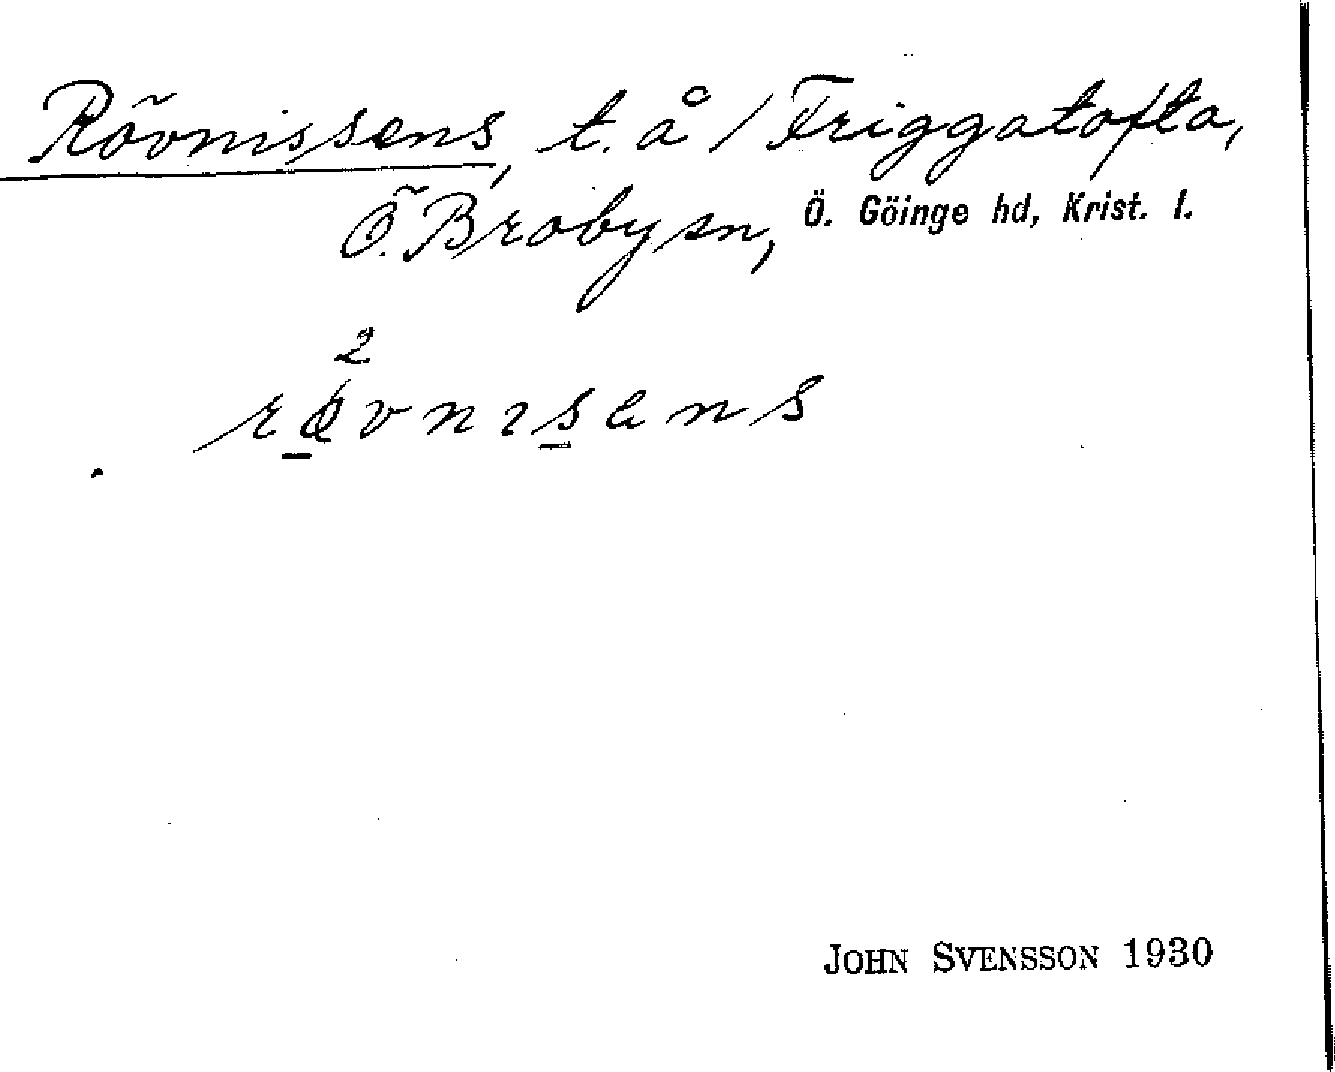 Rövnissens, t. å / Friggatofta,
Ö. Broby sn, Ö. Göinge hd, Krist. l.
2
JOHN SVENSSON 1930